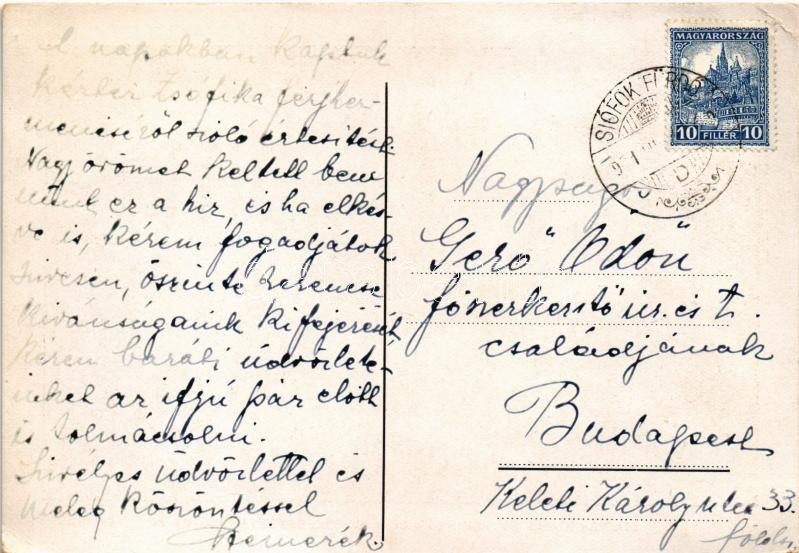 A napokban kaptuk
Zsófika férjhez-
meneséről szóló értesítést.
Nagy örömet keltett ben-
nünket ez a hir, és ha elkés-
ve is, kérem fogadjátok
szivesen, őszinte szerencse
kivánságaink kifejezését,
Kérem baráti üdvözlete-
inket az ifjú pár előtt
is tolmácsolni.
Szivélyes üdvözlettel és
meleg köszöntéssel
MAGYARORSZÁG
10 FILLÉR 10
SIÓFOK FÜRDŐ
Nagyságos
Gerő Ödön
főszerkesztő úr és t.
családjának
Budapest
Keleti Károly utca 33.